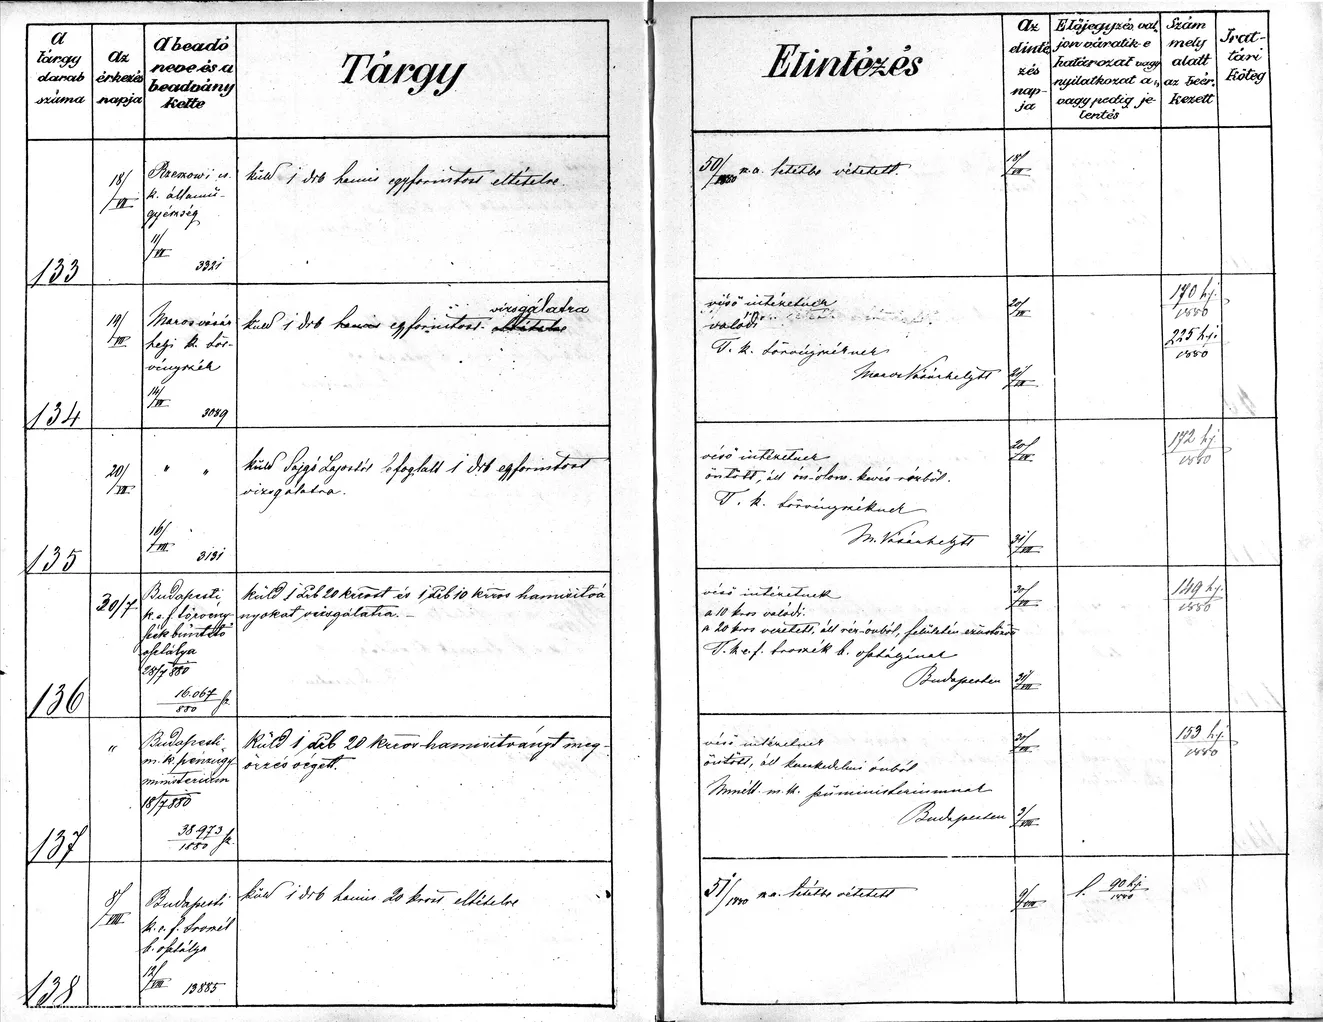 A tárgy darab száma
Az érkezés napja
A beadó neve és a beadvány kelte
Tárgy
Elintézés
Az elintézés napja
Előjegyzés valjon váratik-e határozat vagy nyilatkozat a,, vagy pedig jelentés
Szám mely alatt az beérkezett
Irattári köteg
133
18/VII
k. államügyészség
11/VII
3321
küld 1 drb hamis egyforintost eltételre.
50/1880 n.a. letétbe vétetett.
18/VII
134
19/VII
Marosvásárhelyi k. törvényszék
14/VII
3089
küld 1 drb hamis egyforintost vizsgálatra
véső intézetnek
valódi
T. k. törvényszéknek
Maros Vásárhelytt
20/VII
170 hj.
1880
225 hj.
1880
135
20/VII
" "
16/VII
3131
küld Lajostól lefoglalt 1 drb egyforintost
vizsgálatra.
véső intézetnek
öntött, áll ón-ólom-kevés rézből.
T. k. törvényszéknek
M. Vásárhelytt
20/VII
31/VII
172 hj.
1880
136
30/7
Budapesti
k. e. f. törvény-
szék büntető
osztálya
28/7 880
16.067
880
küld 1 drb 20 krost és 1 drb 10 kros hamisítvá
nyokat vizsgálatra. –
véső intézetnek
a 10 kros valódi.
a 20 kros veretett, áll réz-ónból, felületén ezüstözve
T. k. e. f. trvszék b. osztályának
Budapesten
30/VII
31/VII
149 hj.
1880
137
"
Budapesti
m. k. pénzügy
ministerium
18/7 880
38973
1880
Küld 1 drb 20 kros hamisitványt meg-
őrzés végett.
véső intézetnek
öntött, áll kereskedelmi ónból
m. k. pü ministeriumnak
Budapesten
30/VII
153 hj.
1880
138
8/VIII
Budapesti
k. e. f. trvszék
b. osztálya
12/VIII
13885
küld 1 drb hamis 20 krost eltételre
51/1880 n.a. letétbe vétetett
9/VIII
l. 90 hj.
1880